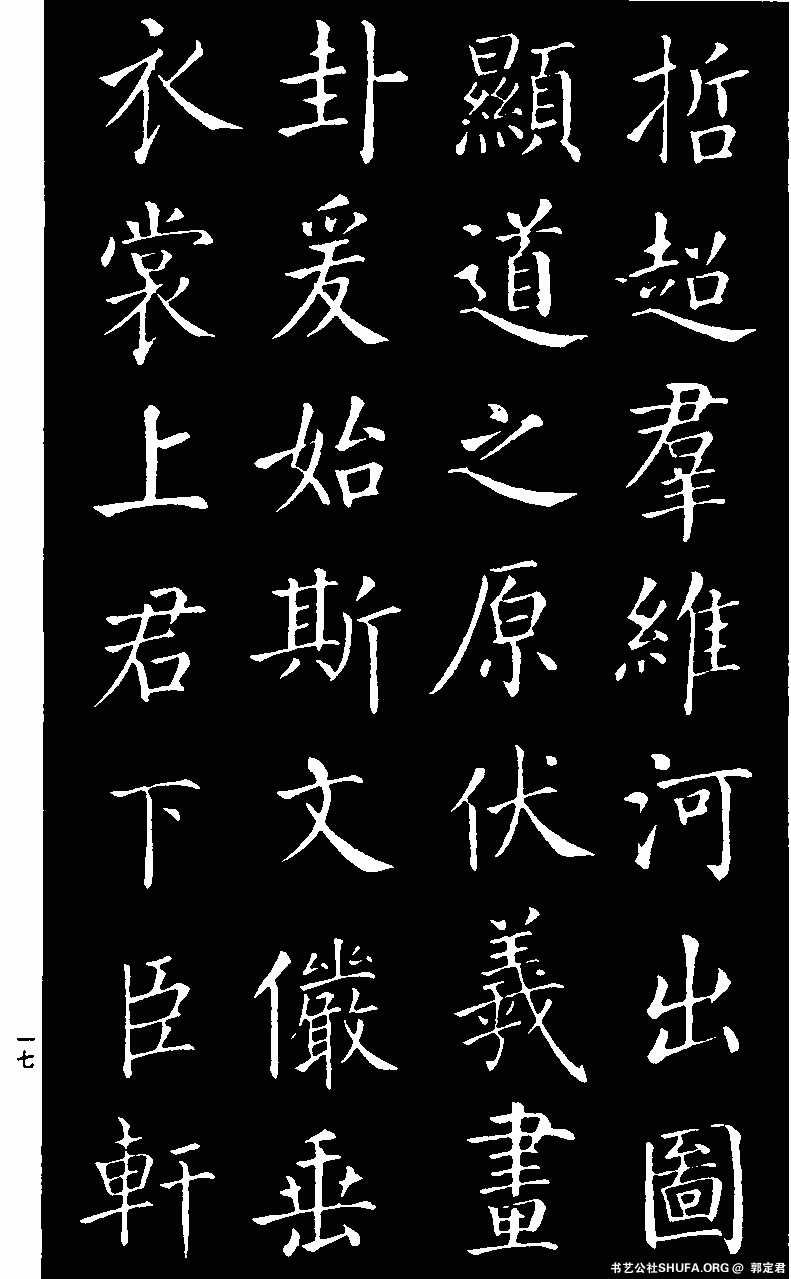 哲超羣維河出圖
顯道之原伏羲畫
卦爰始斯文儼垂
衣裳上君下臣軒
一七
书艺公社SHUFA.ORG @ 郭定君